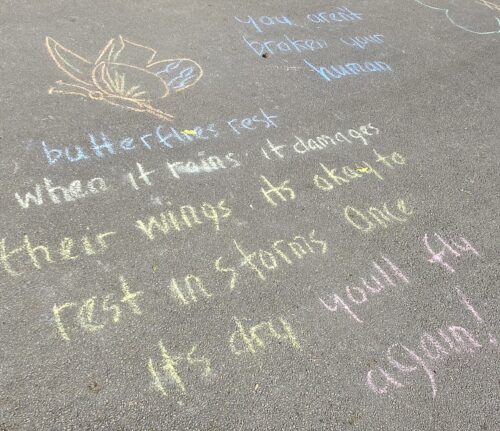 You aren't
broken your
human
butterflies rest
when it rains it damages
their wings its okay to
rest in storms Once
it's dry you'll fly
again!